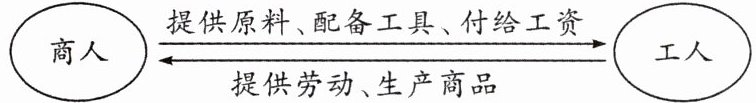 提供原料、配备工具、付给工资
商人
工人
提供劳动、生产商品